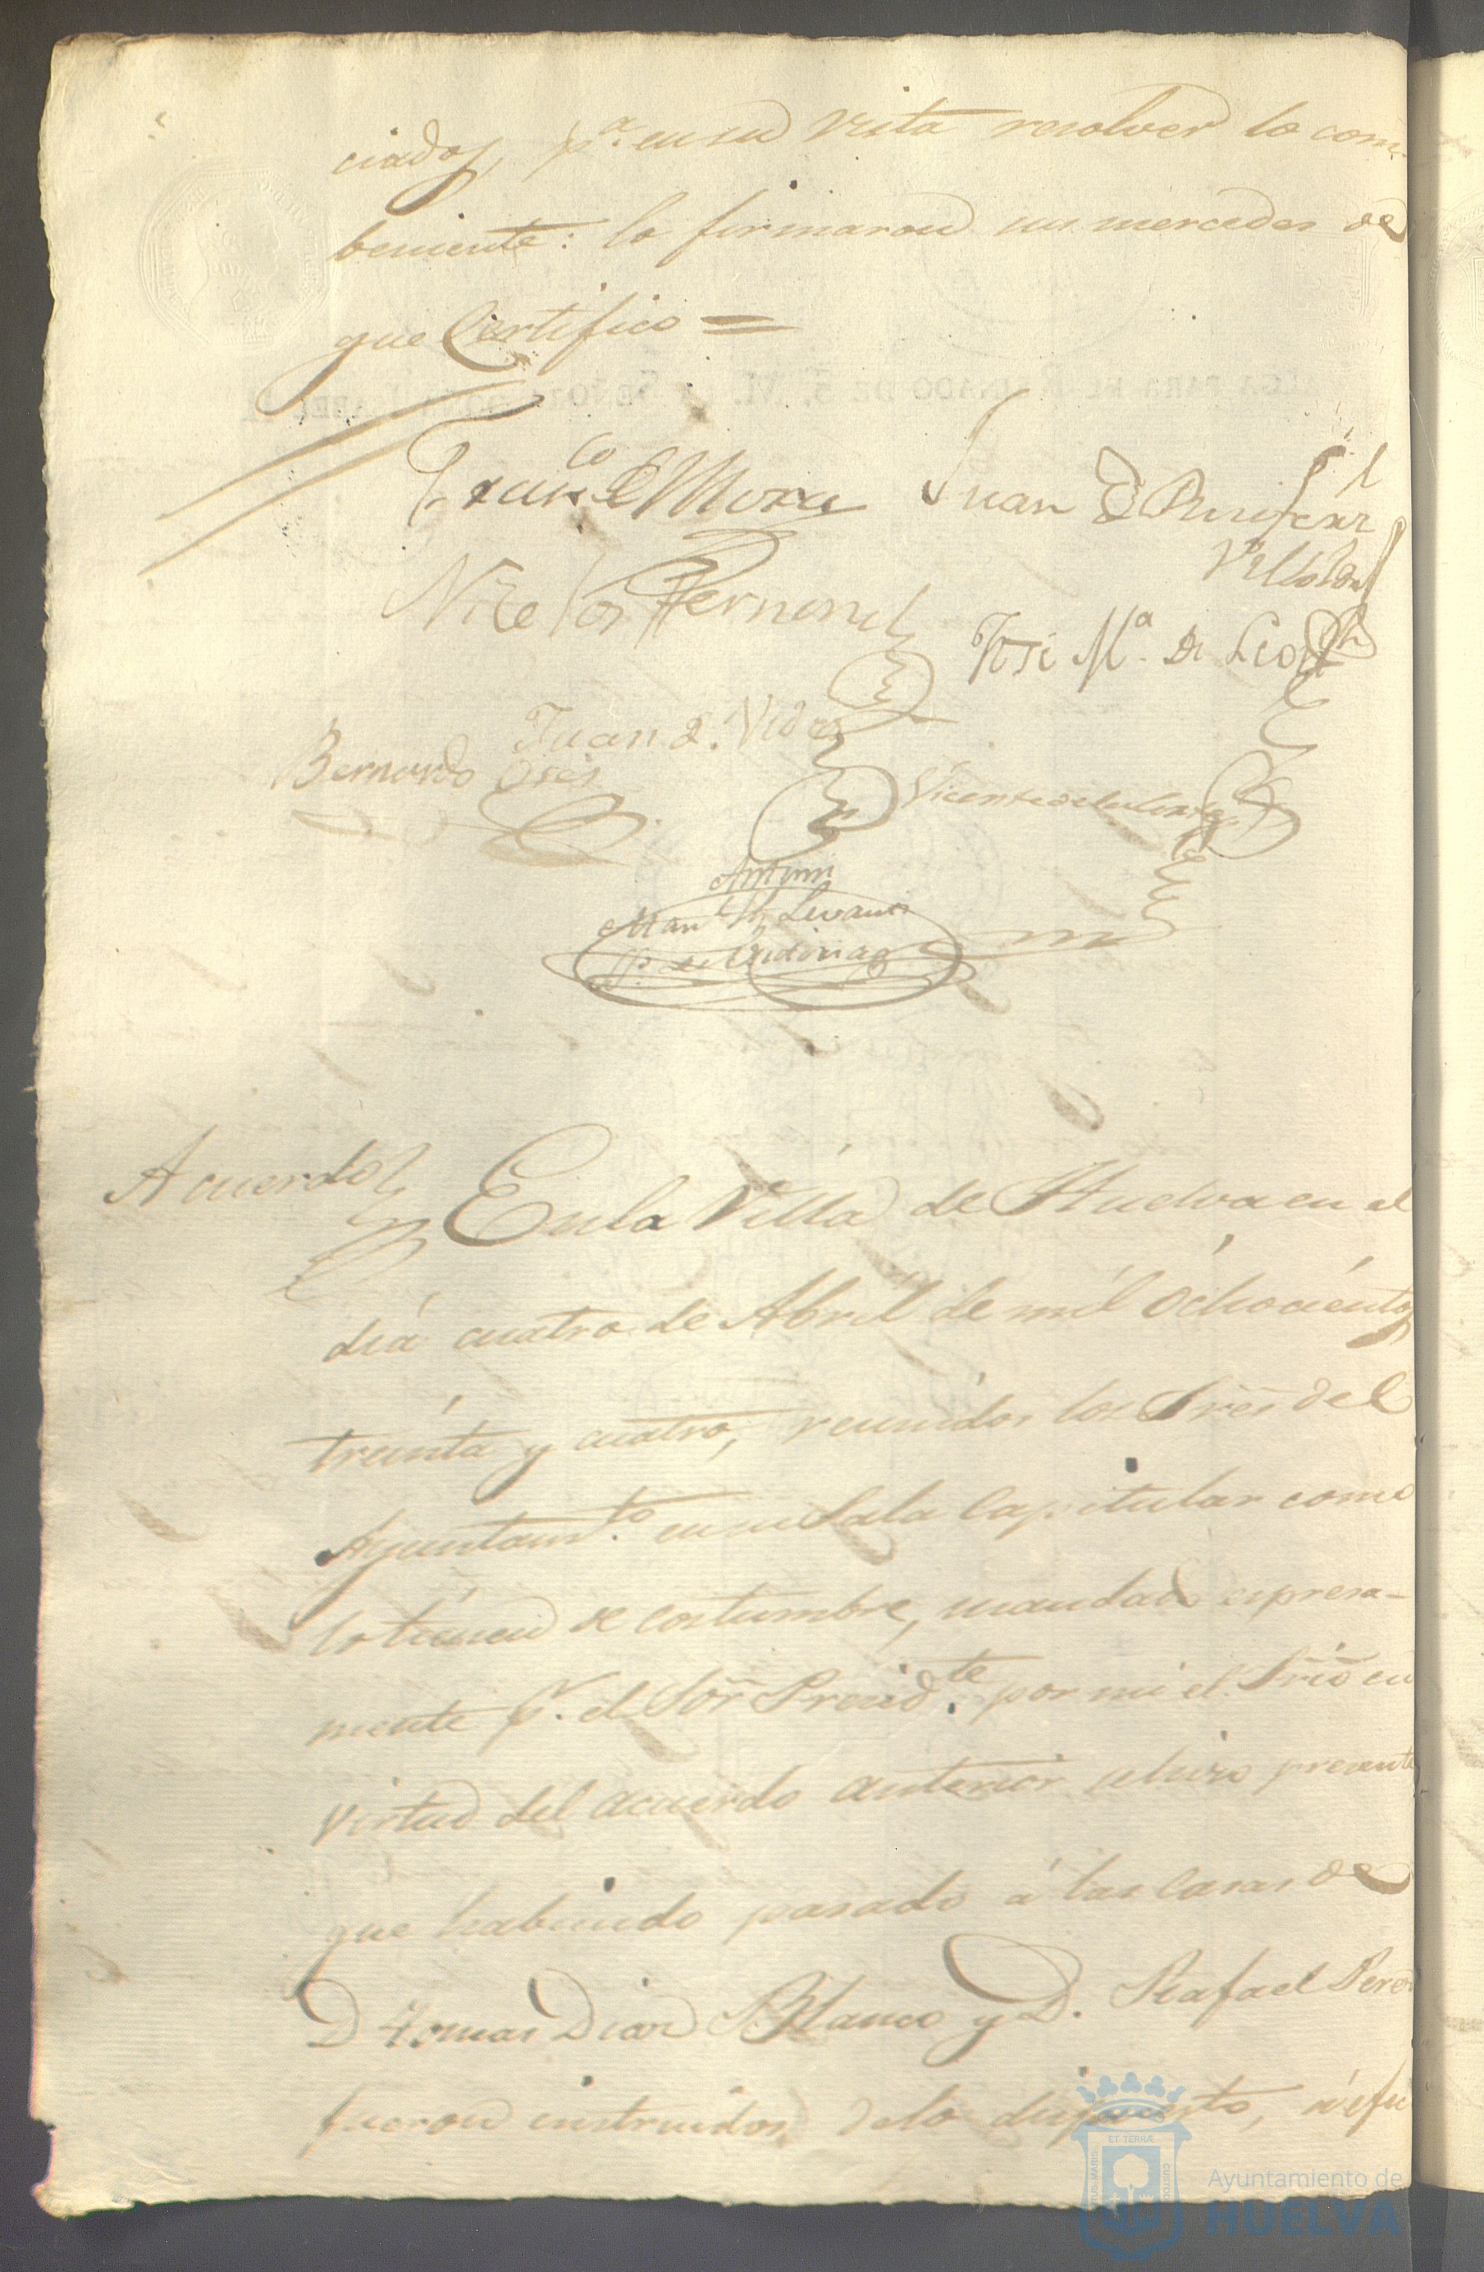 ciados, pª. en su vista resolver lo com-
beniente: lo firmaron sus mercedes de
que Certifico =
Franco. de Mora Juan de
Nicolas Fernandz
José Mª. de Leon
Juan d. Vides
Bernardo
Vicente de la Corte
Antemi
de Vidisiag
Acuerdo
En la Villa de Huelva en el
dia cuatro de Abril de mil ochocientos
treinta y cuatro, reunidos los Sres del
Ayuntamto. en su Sala Capitular como
lo tienen de costumbre, mandado espresa-
mente pr. el Sor Presidte. por mi el Srio en
virtud del acuerdo anterior se hizo presente
que habiendo pasado á las casas de
D Tomas Diaz Blanco y D. Rafael Perez
fueron instruidos de lo dispuesto,
ET TERRÆ
Ayuntamiento de
HUELVA